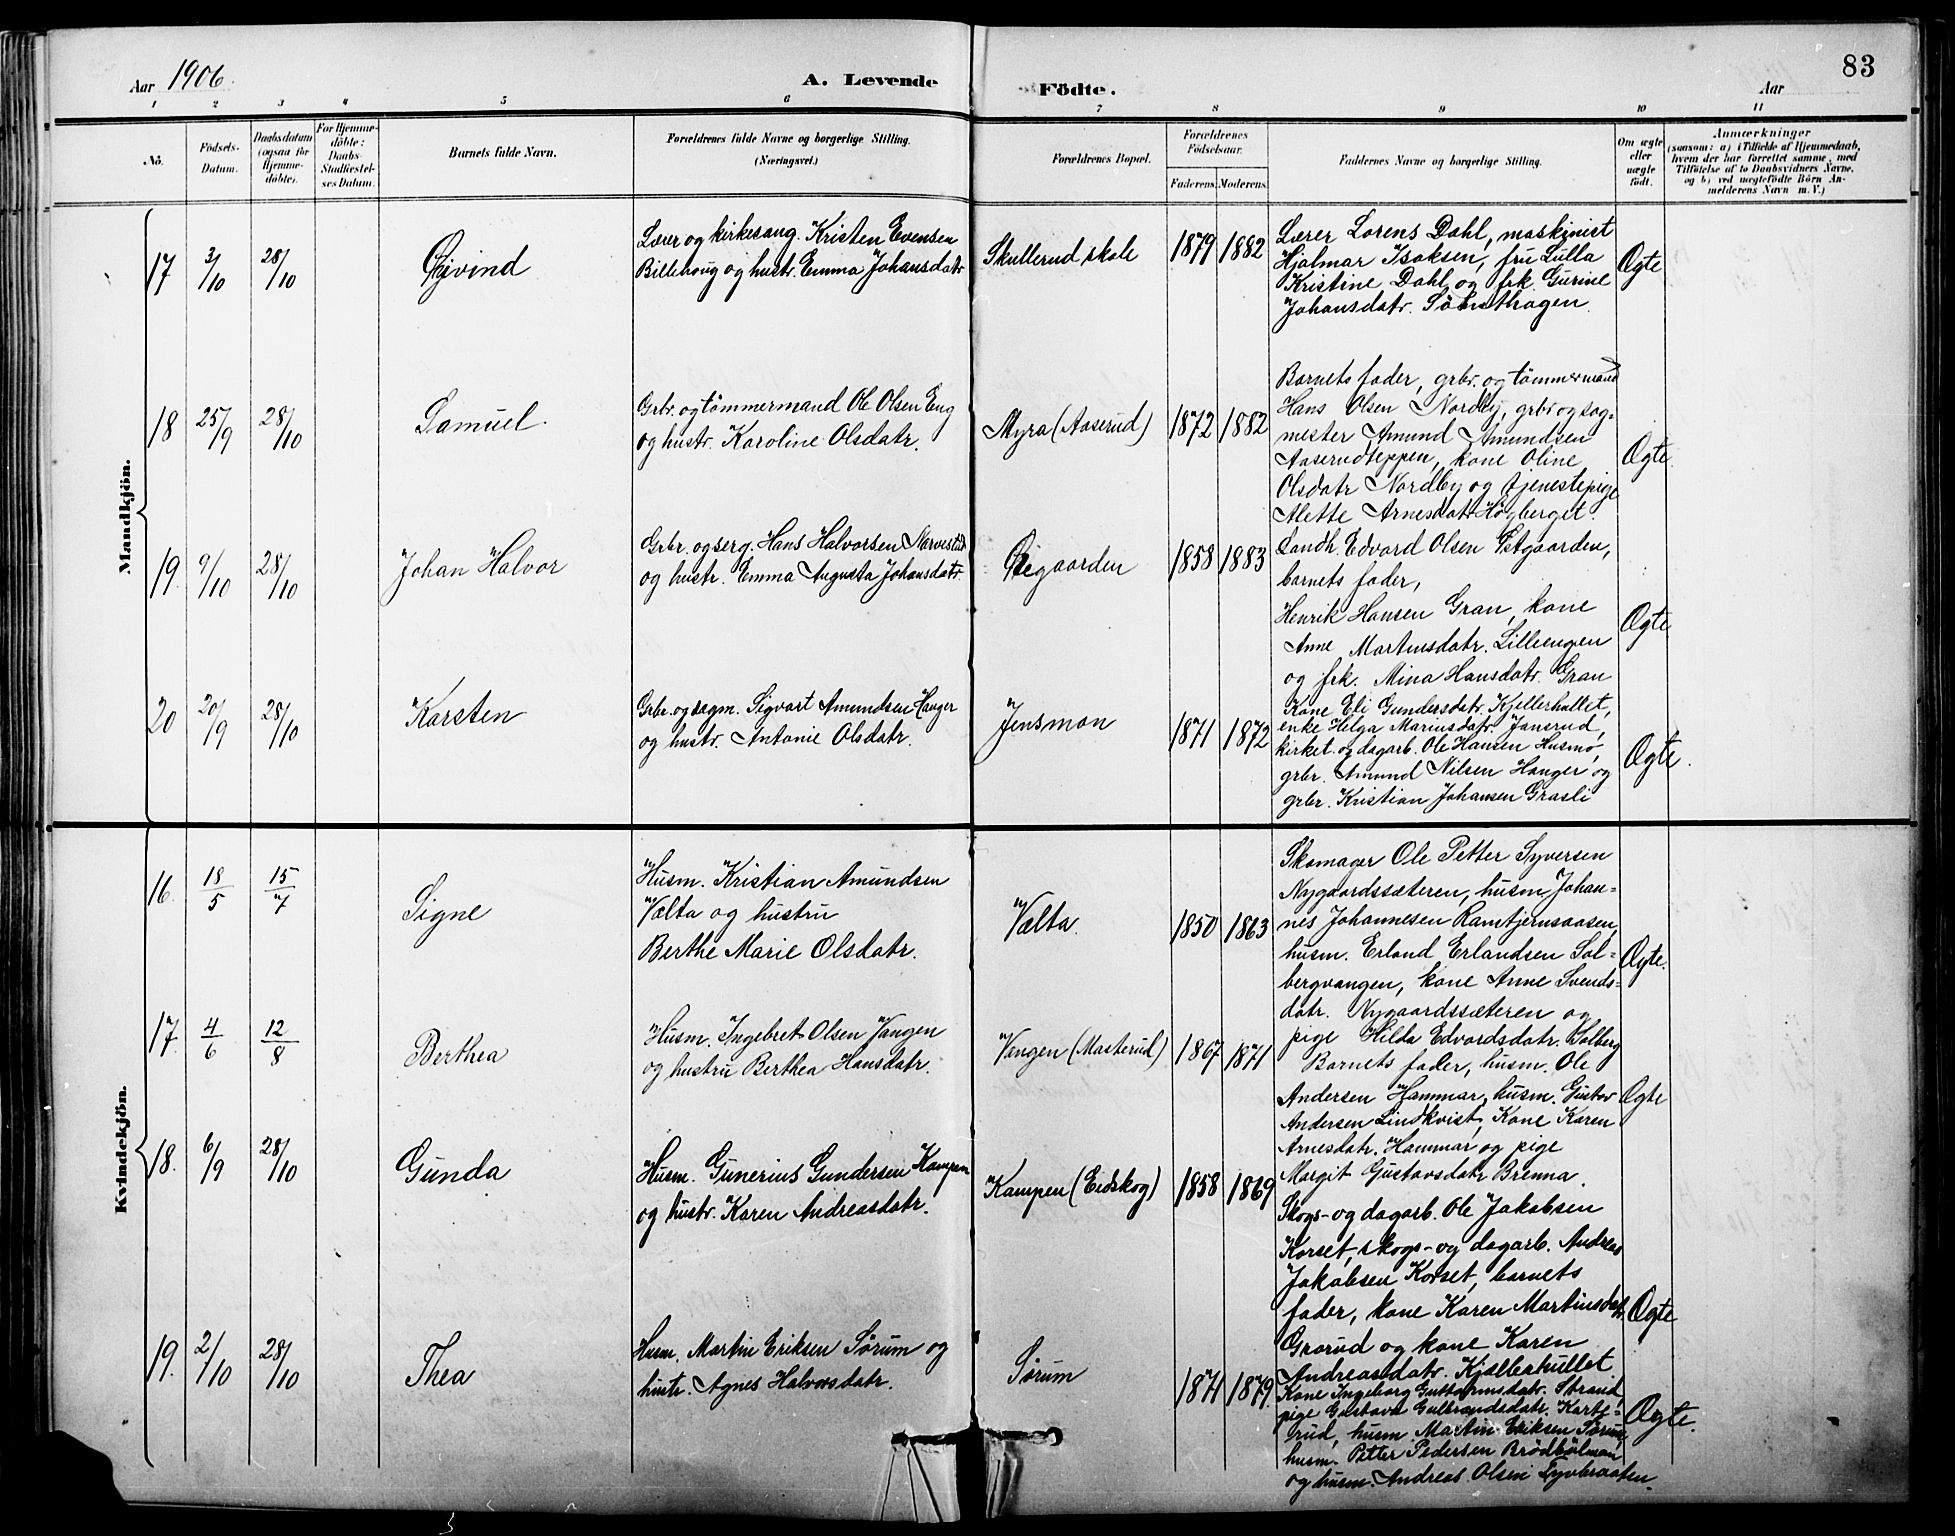 83
Aar 1906.
A. Levende
Födte.
Aar
1 2 3 4 5 6 7 8 9 10 11
No.
Födsels-
Datum.
Daabsdatum
(ogsaa for
Hjemme-
döbte).
For Hjemme-
döbte:
Daabs-
Stadfæstel-
ses Datum.
Barnets fulde Navn.
Forældrenes fulde Navne og borgerlige Stilling.
(Næringsvei.)
Forældrenes Bopæl.
Forældrenes
Födselsaar.
Faderens. Moderens.
Faddernes Navne og borgerlige Stilling.
Om ægte
eller
uægte
födt.
Anmærkninger
(saasom: a) i Tilfælde af Hjemmedaab,
hvem der har forrettet samme, med
Tilföielse af to Daabsvidners Navne,
og b) ved uægtefödte Börn An-
melderens Navn m. V.)
Mandkjön.
17 3/10 28/10
Øivind
Lærer og kirkesang. Kristen Evensen
Billehoug og hustr. Emma Johansdatr.
Skullerud skole
1879 1882
Lærer Lorens Dahl, maskinist
Hjalmar Isaksen, fru Lulla
Kristine Dahl og frk. Gurine
Johansdatr.
Ægte
18 25/9 28/10
Samuel.
Grbr. og tömmermand Ole Olsen Eng
og hustr. Karoline Olsdatr.
Myra (Aaserud)
1872 1882
Barnets fader, grbr. og tömmermand
Hans Olsen Nordby, grbr og sag-
mester Amund Amundsen
Aaserudteppen, kone Oline
Olsdatr Nordby og tjenestepige
Alette Arnesdatr Högberget.
Ægte.
19. 9/10 28/10
Johan Halvor
Grbr. og serg. Hans Halvorsen
og hustr. Emma Augusta Johansdatr.
Øiegaarden
1858 1883
Landh. Edvard Olsen Østgaarden,
barnets fader,
Henrik Hansen Gran, kone
Anne Martinsdatr. Lilleengen
og frk. Mina Hansdatr. Gran
Ægte
20 20/9 28/10
Karsten
Grbr. og sagm. Sigvart Amundsen Hanger
og hustr. Antonie Olsdatr.
Jensmon
1871 1872
Kone Eli Gundersdatr. Kjellerhullet,
enke Helga Mariusdatr. Jansrud,
kirket. og dagarb. Ole Hansen Husmo,
grbr. Amund Nilsen Hanger og
grbr. Kristian Johansen Grasli
Ægte.
Kvindekjön.
16. 18/5 15/7
Signe
Husm. Kristian Amundsen
Vælta og hustru
Berthe Marie Olsdatr.
Vælta.
1850 1863
Skomager Ole Petter Syversen
Nygaardssæteren, husm Johan-
nes Johannesen Ramtjernsaasen,
husm. Erland Erlandsen Sol-
bergvangen, kone Anne Svends-
datr. Nygaardssæteren og
pige Hilda Edvardsdatr. Solberg
Ægte.
17. 4/6 12/8
Berthea
Husm. Ingebret Olsen Vangen
og hustru Berthea Hansdatr.
Vangen (Masterud)
1867 1871
Barnets fader, husm. Ole
Andersen Hammar, husm. Gustav
Andersen Lindkvist, Kone Karen
Arnesdatr. Hammar og pige
Margit Gustavsdatr Brenna.
Ægte
18. 6/9 28/10
Gunda
Husm. Gunerius Gundersen Kampen
og hustr. Karen Andreasdatr.
Kampen (Eidskog)
1858 1869
Skogs- og dagarb. Ole Jakobsen
Korset, skogs- og dagarb. Andreas
Jakobsen Korset, barnets
fader, kone Karen Martinsdatr.
Grorud og kone Karen
Andreasdatr. Kjellerhullet
Ægte
19. 2/10 28/10
Thea
Husm. Martin Eriksen Sørum og
hustr. Agnes Halvorsdatr.
Sørum
1871 1879.
Kone Ingeborg Guttormsdatr. Strand,
pige Gustava Gulbrandsdatr. Karte-
rud, husm. Martin Eriksen Sørum,
husm. Petter Pedersen Brödbölmoen
og husm. Andreas Olsen Tyvbraaten.
Ægte.